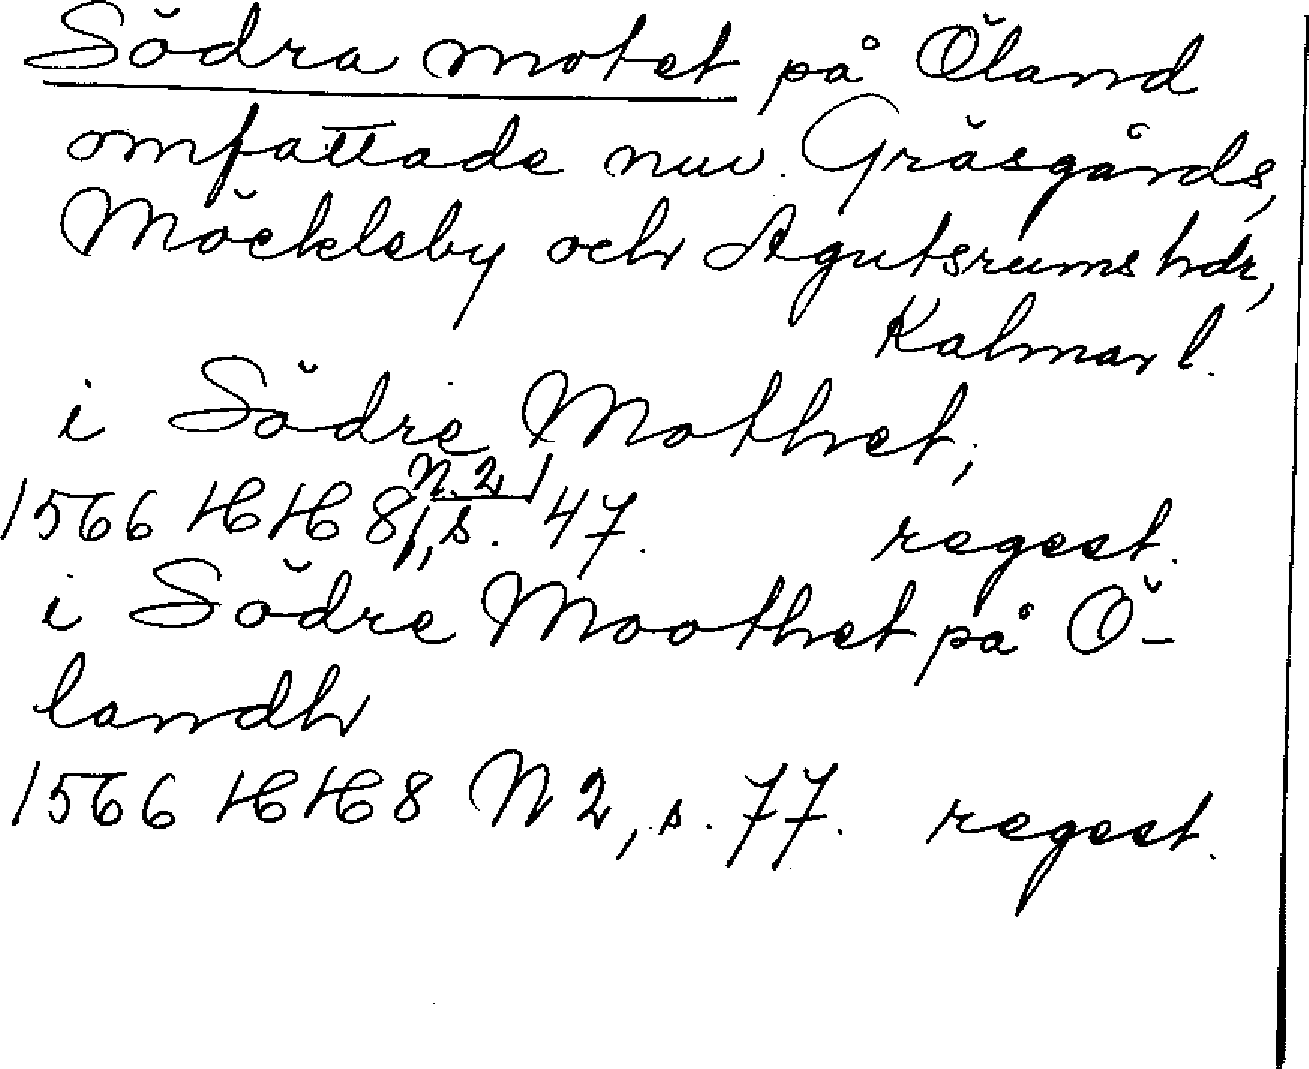 Södra motet på Öland
omfattade nuv. Gräsgårds,
Möckleby och Algutsrums hdr,
Kalmar l.
i Södre Mothet;
1566 HH 8, N. 2, s. 47. regest.
i Södre Moothet på Ö-
landh
1566 HH 8 N 2, s. 77. regest.